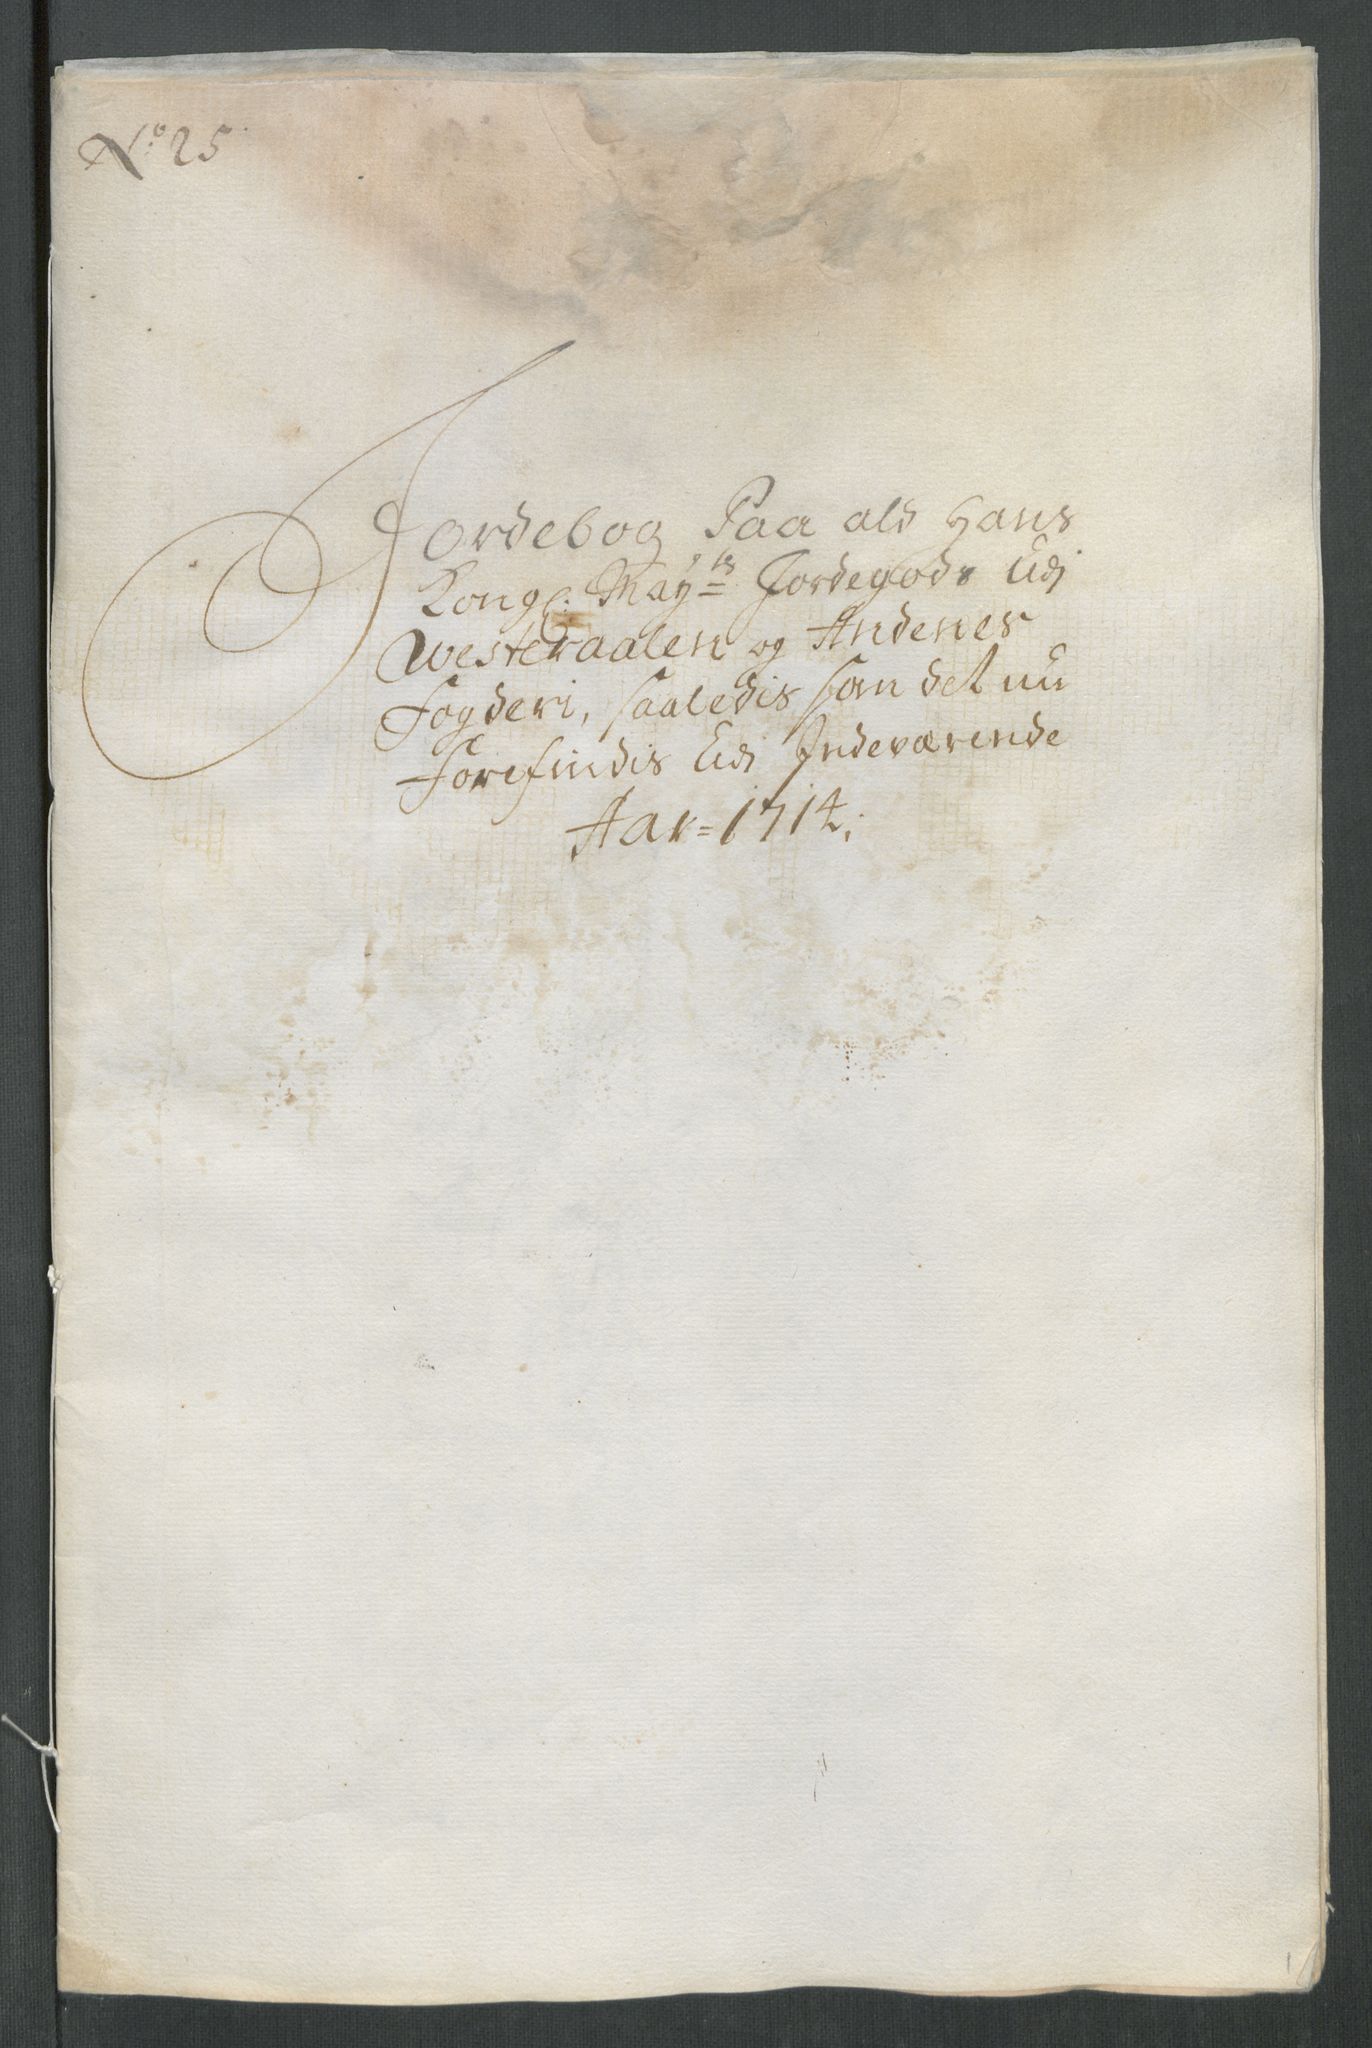 No 25
Jordebog Paa ald Hans
Kongl: Mayts Jordegods Udj
Westeraalen og Andenes
Fogderi, saaledis som det nu
Forefindis Udj Indeværende
Aar = 1714.
1